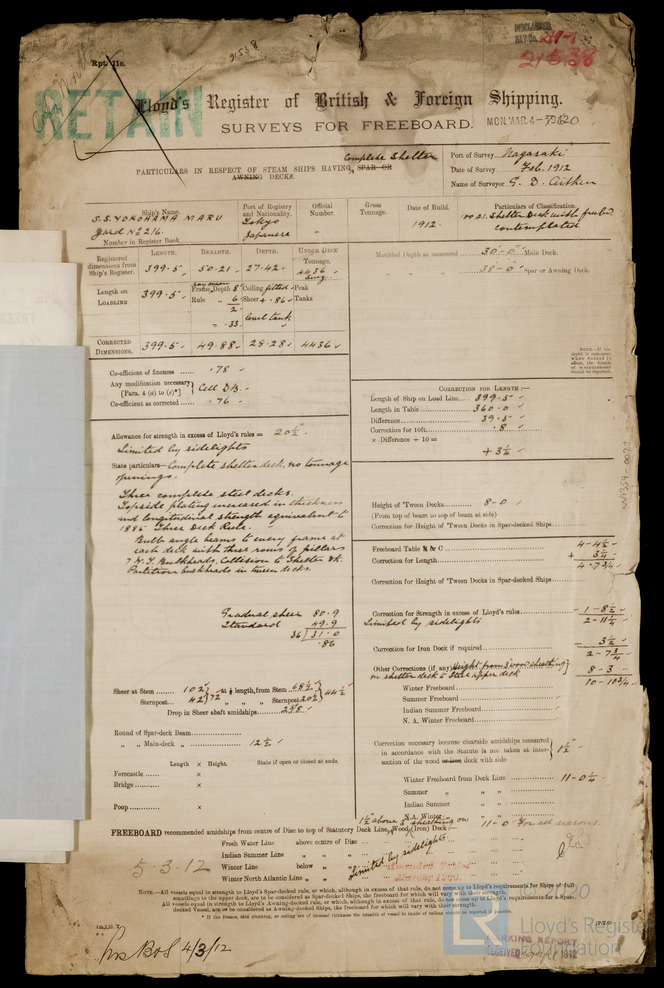 Rpt. 11c.
RETAIN
21538
Lloyd's Register of British & Foreign Shipping.
SURVEYS FOR FREEBOARD.
MON. MAR. 4 - 1912
Complete Shelter
PARTICULARS IN RESPECT OF STEAM SHIPS HAVING SPAR OR
AWNING DECKS.
Port of Survey Nagasaki
Date of Survey Feb. 1912
Name of Surveyor G. D. Aitken
Ship's Name.
S.S. YOKOHAMA MARU
Yard No 216.
Number in Register Book
Port of Registry and Nationality.
Tokyo
Japanese
Official Number.
Gross Tonnage.
Date of Build.
1912.
Particulars of Classification.
100 A1. Shelter Deck with freebd.
contemplated
Registered dimensions from Ship's Register.
LENGTH. BREADTH. DEPTH. UNDER DECK TONNAGE.
399.5 50.21 27.42 4436
Length on LOADLINE 399.5
Frame Depth 8" Ceiling fitted Peak
Rule 6 Sheer + .86 Tanks
2
= .33
CORRECTED DIMENSIONS. 399.5 49.88 28.28 4436
Moulded Depth as measured 30'-0" Main Deck.
" " " 38'-0" Spar or Awning Deck.
Co-efficient of fineness .78
Any modification necessary [Para. 4 (a) to (e)*] Cell D.B.
Co-efficient as corrected .76
Allowance for strength in excess of Lloyd's rules = 20½
Limited by sidelights
State particulars— Complete shelter deck, no tonnage
openings.
Three complete steel decks.
Topside plating increased in thickness
and longitudinal strength equivalent to
1885 Three Deck Rule.
Bulb angle beams to every frame at
each deck with three rows of pillars
7 W.T. Bulkheads, Collision to Shelter dk.
Partition bulkheads in tween decks.
Gradual sheer 80.9
Standard 49.9
36)31.0
.86
Sheer at Stem 102
Sternpost 42
72
at ⅛ length, from Stem 68½
" " " Sternpost 20½
44½
Drop in Sheer abaft amidships
Round of Spar-deck Beam
" " Main-deck " 12½
Length × Height. State if open or closed at ends.
Forecastle ×
Bridge ×
Poop ×
CORRECTION FOR LENGTH:—
Length of Ship on Load Line 399.5
Length in Table 360.0
Difference 39.5
Correction for 10ft. .8
× Difference ÷ 10 =
+ 3¼
Height of 'Tween Decks 8-0
(From top of beam to top of beam at side)
Correction for Height of 'Tween Decks in Spar-decked Ships
Freeboard Table C 4-4½
Correction for Length + 3¼
4-7¾
Correction for Height of 'Tween Decks in Spar-decked Ships
Correction for Strength in excess of Lloyd's rules - 1-8½
Limited by sidelights 2-11¼
Correction for Iron Deck if required - 3½
2-7¾
Other Corrections (if any) Height from 3" iron sheathing
on shelter deck to steel upper deck 8-3
10-10¾
Winter Freeboard
Summer Freeboard
Indian Summer Freeboard
N. A. Winter Freeboard
Correction necessary because clearside amidships measured
in accordance with the Statute is not taken at inter-
section of the wood or iron deck with side 1½
Winter Freeboard from Deck Line 11-0¼
Summer " "
Indian Summer " "
N.A. Winter " "
1½ above 3" sheathing on
FREEBOARD recommended amidships from centre of Disc to top of Statutory Deck Line, Wood (Iron) Deck:— 11-0 For all seasons.
Fresh Water Line above centre of Disc
Indian Summer Line " "
Winter Line below " "
Winter North Atlantic Line " "
Limited by sidelights
5.3.12
NOTE.—All vessels equal in strength to Lloyd's Spar-decked rule, or which, although in excess of that rule, do not come up to Lloyd's requirements for Ships of full
scantlings to the upper deck, are to be considered as Spar-decked Ships, the freeboard of which will vary with their strength.
All vessels equal in strength to Lloyd's Awning-decked rule, or which, although in excess of that rule, do not come up to Lloyd's requirements for a Spar-
decked Vessel, are to be considered as Awning-decked Ships, the freeboard of which will vary with their strength.
4/3/12
MARKING REPORT
RECEIVED 1912
LR
Lloyd's Register
Foundation